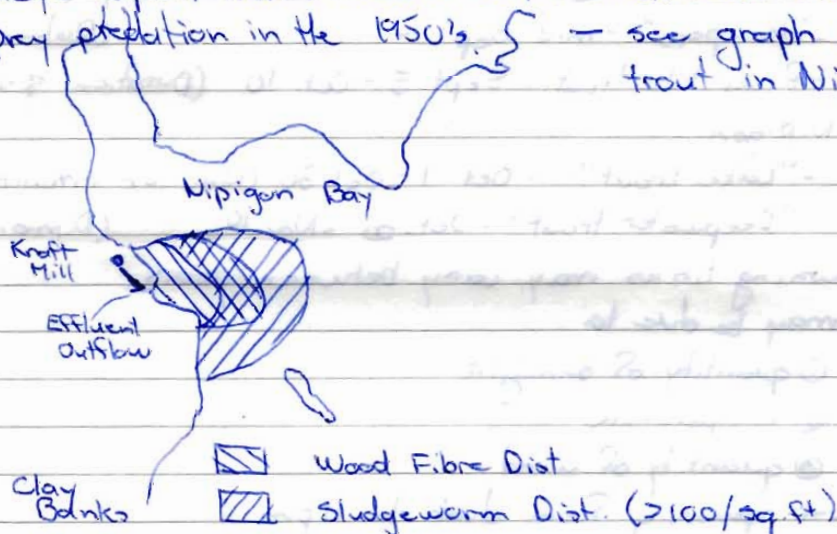 predation in the 1950's. - see graph
trout in Ni
Nipigon Bay
Kraft
Mill
Effluent
Outflow
Wood Fibre Dist
Clay
Banks
Sludgeworm Dist. (>100/sq.ft)